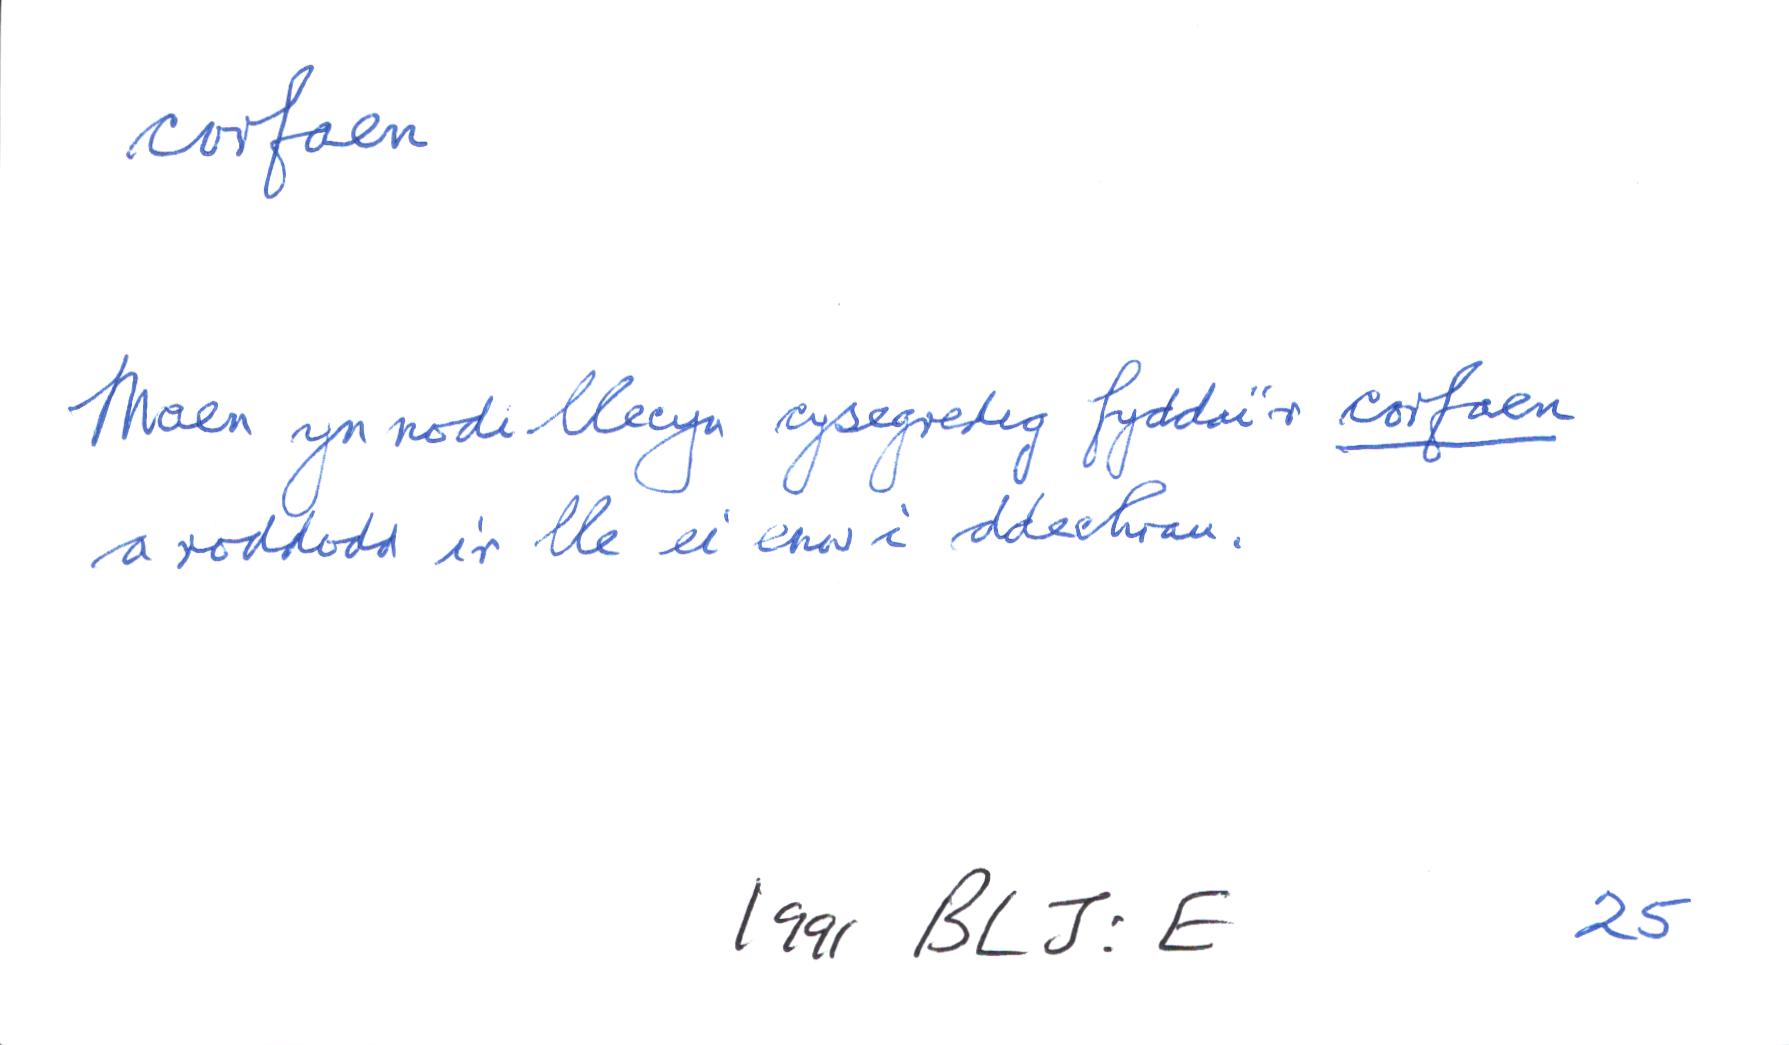 corfaen
Maen yn nodi llecyn cysegredig fyddai'r corfaen
a roddodd i'r lle ei enw i ddechrau.
1991 BLJ: E 25